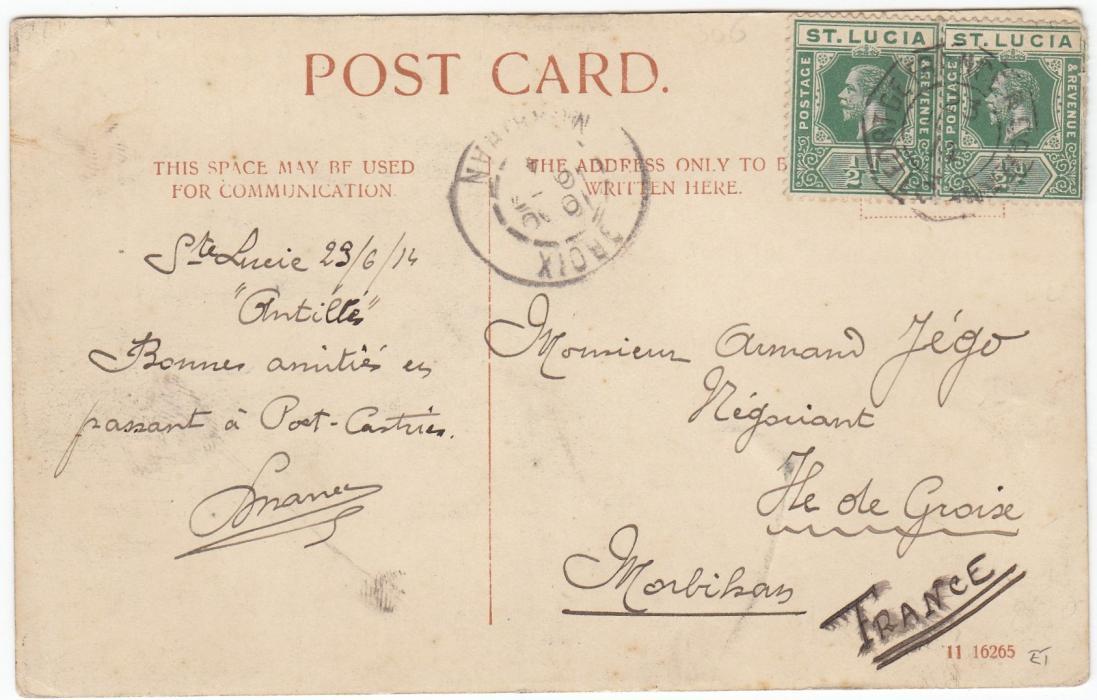 POST CARD.
THIS SPACE MAY BE USED
FOR COMMUNICATION.
THE ADDRESS ONLY TO B
WRITTEN HERE.
ST. LUCIA
POSTAGE
& REVENUE
1/2
ST. LUCIA
POSTAGE
& REVENUE
1/2
GROIX
MORBIHAN
Ste Lucie 23/6/14
"Antilles"
Bonnes amitiés en
passant à Port-Castries.
Monsieur Armand Jégo
Négociant
Ile de Groix
Morbihan
FRANCE
11 16265
ET